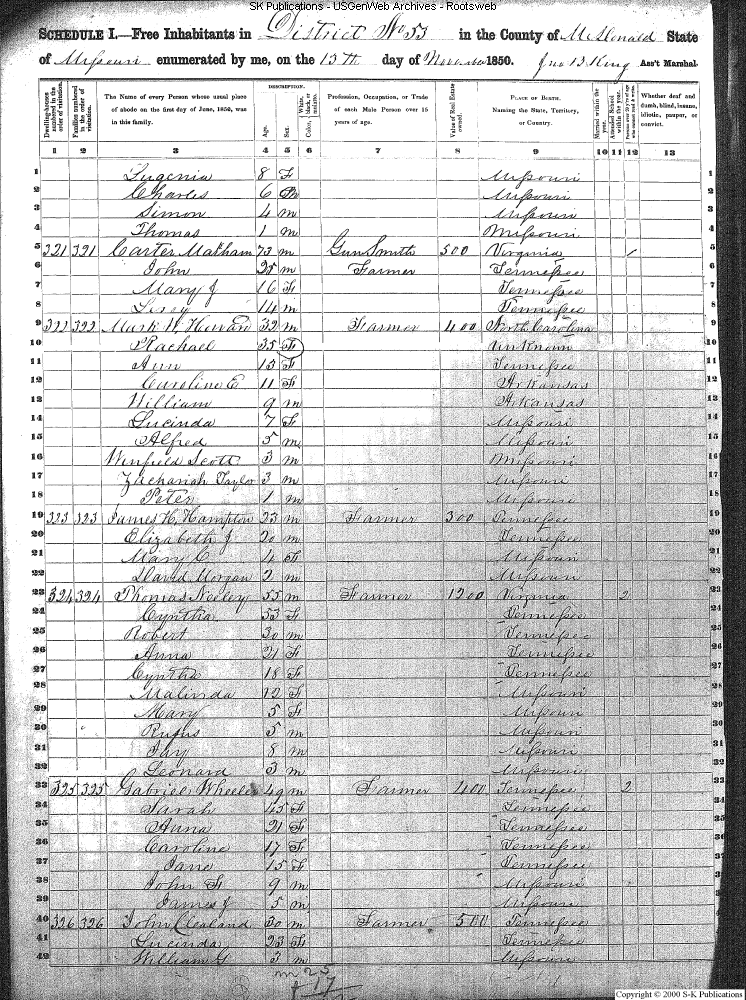 SK Publications - USGenWeb Archives - Rootsweb
SCHEDULE I.—Free Inhabitants in District No 53 in the County of McDonald State
of Missouri enumerated by me, on the 13th day of November 1850. Jno B King Ass't Marshal.
Dwelling-houses numbered in the order of visitation.
Families numbered in the order of visitation.
The Name of every Person whose usual place of abode on the first day of June, 1850, was in this family.
DESCRIPTION.
Age.
Sex.
Color, White, black, or mulatto.
Profession, Occupation, or Trade of each Male Person over 15 years of age.
Value of Real Estate owned.
PLACE OF BIRTH. Naming the State, Territory, or Country.
Married within the year.
Attended School within the year.
Persons over 20 y'rs of age who cannot read & write.
Whether deaf and dumb, blind, insane, idiotic, pauper, or convict.
1 2 3 4 5 6 7 8 9 10 11 12 13
1 Eugenia 8 F Missouri 1
2 Charles 6 m Missouri 2
3 Simon 4 m Missouri 3
4 Thomas 1 m Missouri 4
5 321 321 Carter Markham 73 m Gun Smith 500 Virginia / 5
6 John 25 m Farmer Tennessee 6
7 Mary J 16 F Tennessee 7
8 14 m Tennessee 8
9 322 322 Mark W 32 m Farmer 400 North Carolina 9
10 Rachael 35 F Unknown 10
11 Ann 13 F Tennessee 11
12 Caroline E 11 F Arkansas 12
13 William 9 m Arkansas 13
14 Lucinda 7 F Missouri 14
15 Alfred 5 m Missouri 15
16 Winfield Scott 3 m Missouri 16
17 Zachariah Taylor 3 m Missouri 17
18 Peter 1 m Missouri 18
19 323 323 James H. Hampton 23 m Farmer 300 Tennessee 19
20 Elizabeth J 20 m Tennessee 20
21 Mary C 4 F Missouri 21
22 David Morgan 2 m Missouri 22
23 324 324 Thomas Neeley 55 m Farmer 1200 Virginia 2 23
24 Cyntha 53 F Tennessee 24
25 Robert 30 m Tennessee 25
26 Anna 21 F Tennessee 26
27 Cyntha 18 F Tennessee 27
28 Malinda 12 F Missouri 28
29 Mary 5 F Missouri 29
30 Rufus 5 m Missouri 30
31 Jay 8 m Missouri 31
32 Leonard 3 m Missouri 32
33 325 325 Gabriel Wheeler 49 m Farmer 400 Tennessee 2 33
34 Sarah 45 F Tennessee 34
35 Anna 21 F Tennessee 35
36 Caroline 17 F Tennessee 36
37 Jane 15 F Tennessee 37
38 John F 9 m Missouri 38
39 James J 5 m Missouri 39
40 326 326 John Cleland 30 m Farmer 500 Tennessee 40
41 Lucinda 23 F Tennessee 41
42 William G 3 m Missouri 42
m 25
F 17
Copyright © 2000 S-K Publications